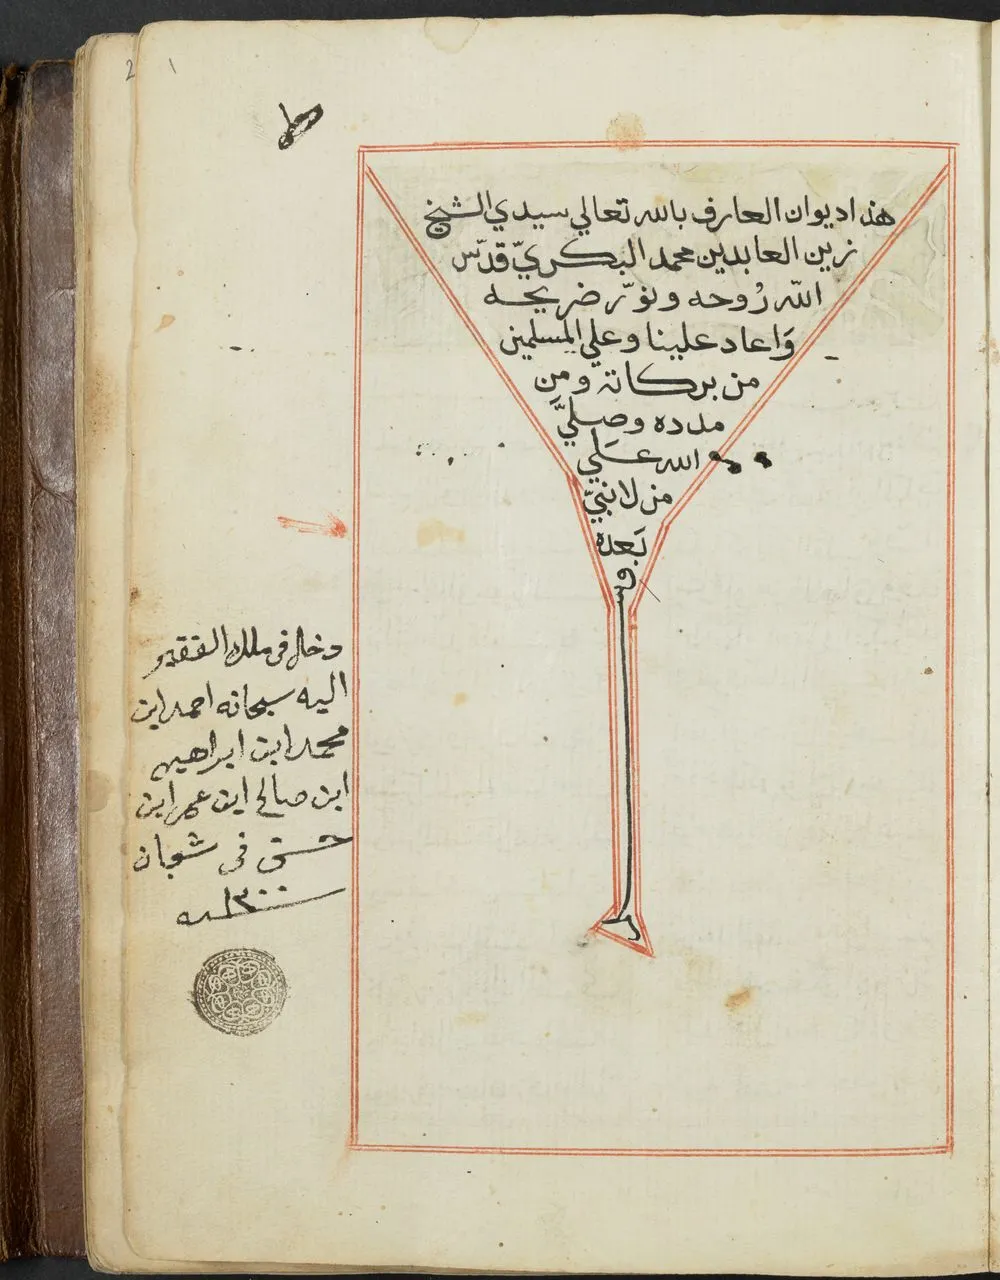 2 1
هذا ديوان العارف بالله تعالي سيدي الشيخ
زين العابدين محمد البكريّ قدّس
الله رُوحه ونوّر ضريحه
وَاعاد علينا وعلي المسلمين
من بركاته ومن
مدده وصليّ
الله عَلي
من لا نبيّ
بَعده
دخل فى ملك الفقير
اليه سبحانه احمد ابن
محمد ابن ابراهيم
ابن صالح ابن عمر ابن
فى شعبان